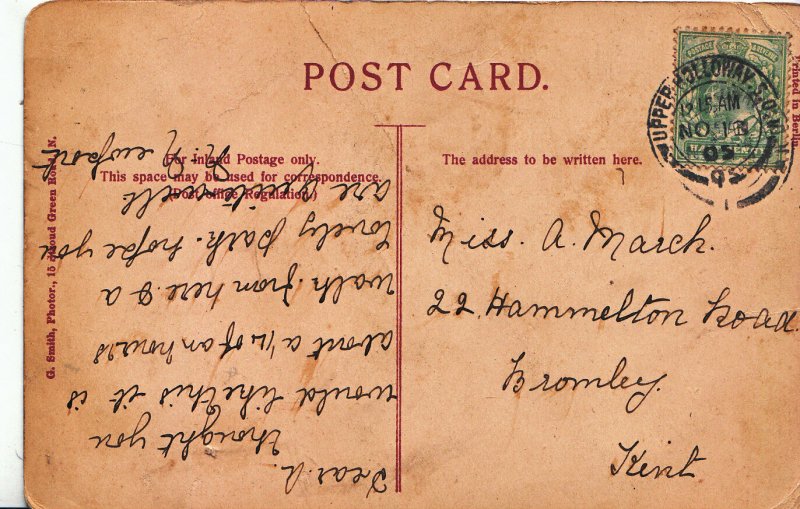 POST CARD.
For Inland Postage only.
This space may be used for correspondence.
(Post Office Regulation.)
The address to be written here.
G. Smith, Photor., 15 Stroud Green Road, N.
Printed in Berlin
POSTAGE & REVENUE
UPPER HOLLOWAY. S.O. N.
12.15 AM
NO 1
05
95
Miss. A. March.
22 Hammelton Road.
Bromley.
Kent
Dear A.
thought you
would like this it is
about a 1/2 of an hours
walk from here & a
lovely path. hope you
are quite well
R. Newport